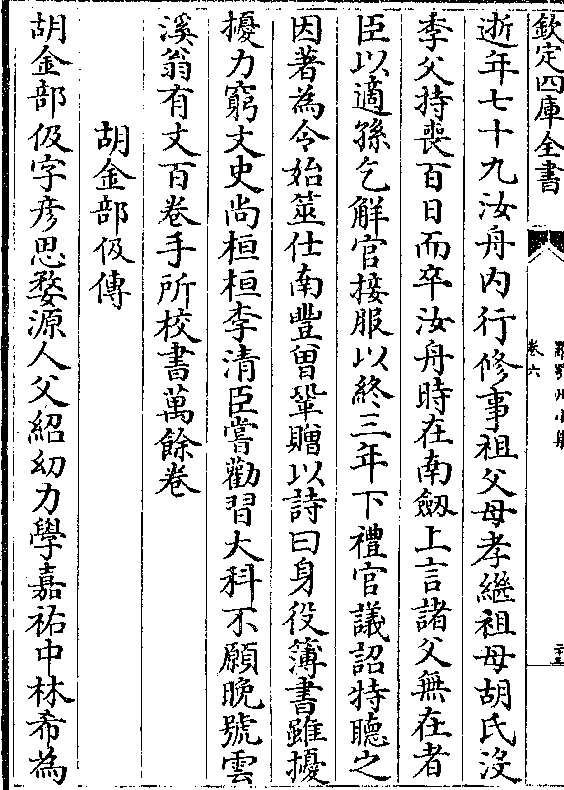 欽定四庫全書
羅鄂州小集
卷六
逝年七十九汝舟内行修事祖父母孝繼祖母胡氏沒
季父持喪百日而卒汝舟時在南劔上言諸父無在者
臣以適孫乞解官接服以終三年下禮官議詔特聽之
因著為令始筮仕南豐曾鞏贈以詩曰身役簿書雖擾
擾力窮文史尚桓桓李清臣嘗勸習大科不願晩號雲
溪翁有文百卷手所校書萬餘卷
胡金部伋傳
胡金部伋字彦思婺源人父紹幼力學嘉祐中林希為